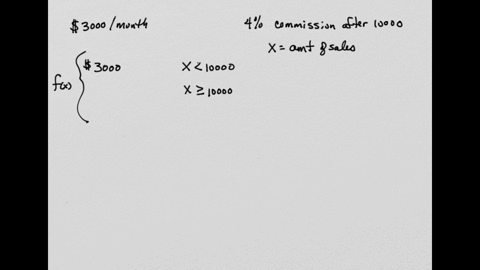 $3000/month
4% commission after 10000
X = amt of sales
f(x) { $3000 X < 10000
X ≥ 10000